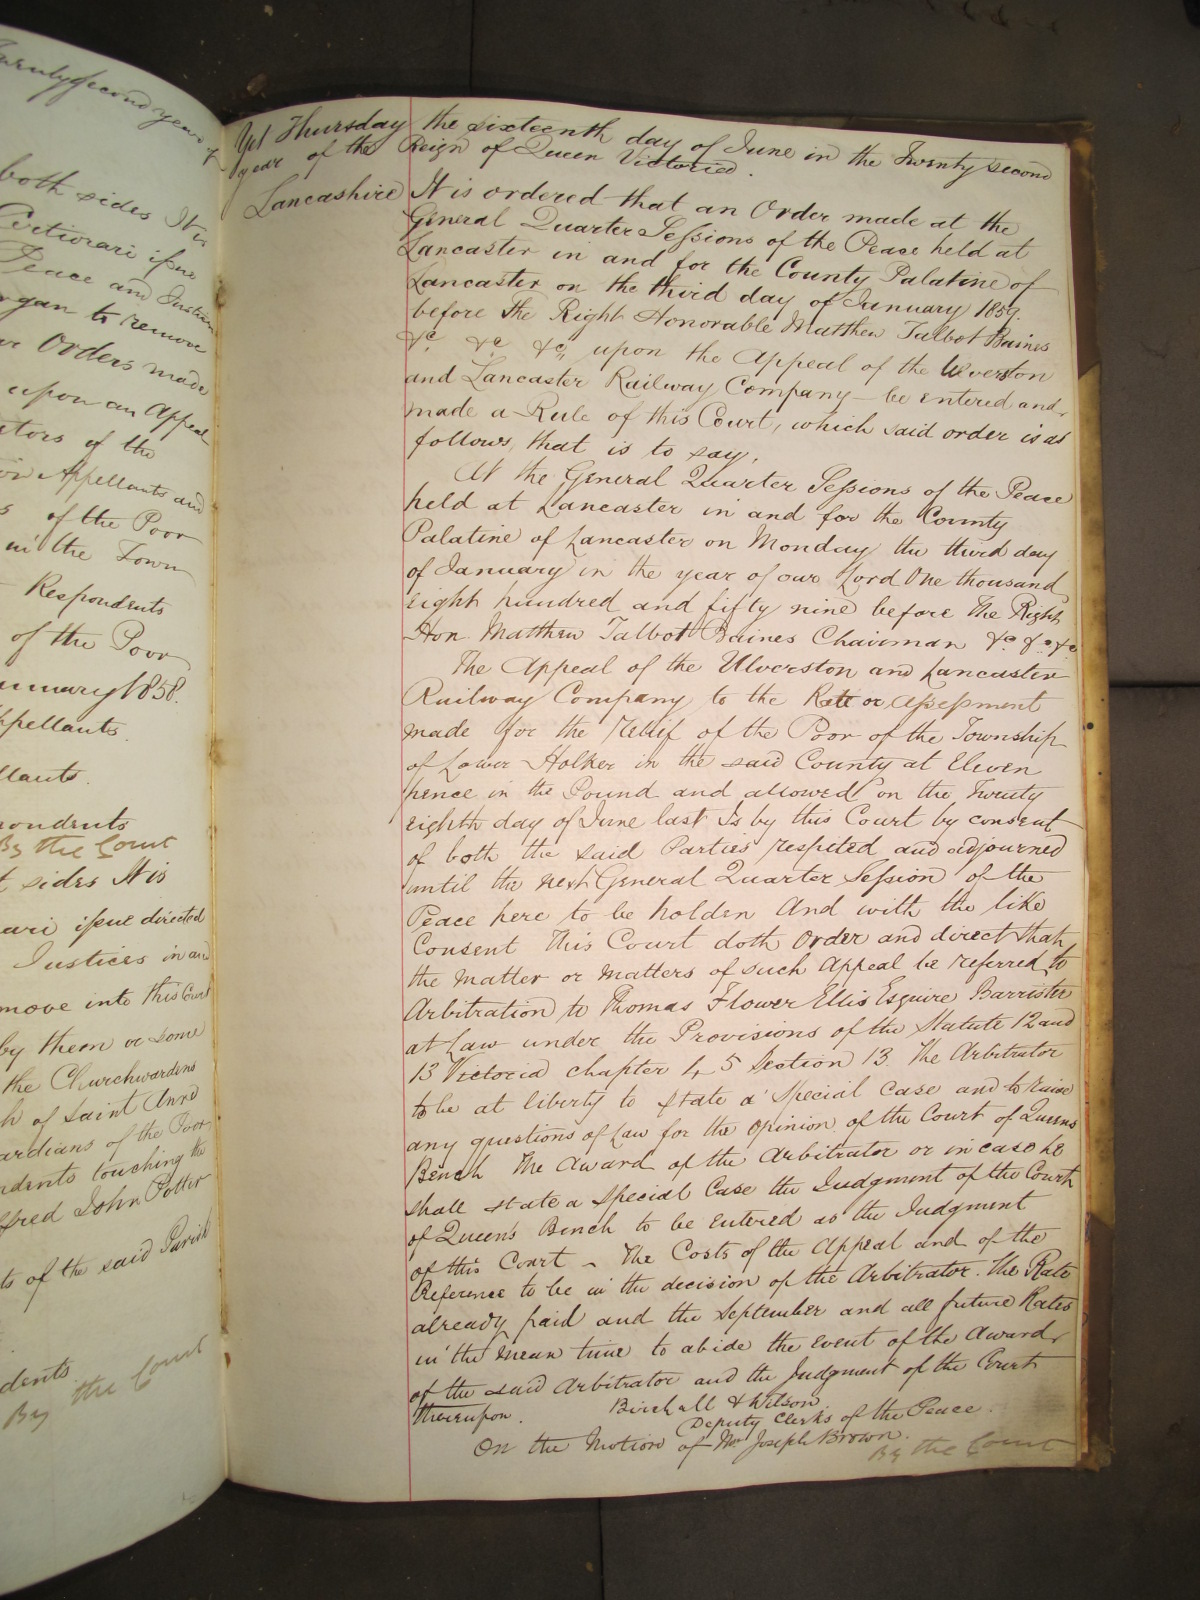 Twenty second year of
both sides It is
Certiorari issue
Peace and Justices
to remove
Orders made
upon an Appeal
of the
Appellants and
of the Poor
in the Town
Respondents
of the Poor
January 1858.
Appellants.
llants.
pondents
By the Court
sides It is
ari issue directed
Justices in and
move into this Court
by them or some
the Churchwardens
h of Saint Anne
ardians of the Poor
ndents touching the
fred John Potter
ts of the said Parish
dents.
By the Court
Yet Thursday the sixteenth day of June in the Twenty second
year of the Reign of Queen Victoria.
Lancashire It is ordered that an Order made at the
General Quarter Sessions of the Peace held at
Lancaster in and for the County Palatine of
Lancaster on the third day of January 1859.
before the Right Honorable Matthew Talbot Baines
&c &c &c, upon the Appeal of the Ulverston
and Lancaster Railway Company – be entered and
made a Rule of this Court, which said order is as
follows, that is to say.
At the General Quarter Sessions of the Peace
held at Lancaster in and for the County
Palatine of Lancaster on Monday the third day
of January in the year of our Lord One thousand
eight hundred and fifty nine before The Right
Hon. Matthew Talbot Baines Chairman &c &c &c
The Appeal of the Ulverston and Lancaster
Railway Company to the Rate or assessment
made for the relief of the Poor of the Township
of Lower Holker in the said County at Eleven
pence in the Pound and allowed on the Twenty
eighth day of June last Is by this Court by consent
of both the said Parties respited and adjourned
until the next General Quarter Session of the
Peace here to be holden And with the like
Consent This Court doth Order and direct that
the matter or matters of such Appeal be referred to
Arbitration to Thomas Flower Ellis Esquire Barrister
at Law under the Provisions of the Statute 12 and
13 Victoria chapter 45 Section 13. The Arbitrator
to be at liberty to state a Special Case and to raise
any questions of Law for the opinion of the Court of Queens
Bench The Award of the Arbitrator or in case he
shall state a Special Case the Judgment of the Court
of Queen's Bench to be entered as the Judgment
of this Court – The Costs of the Appeal and of the
Reference to be in the decision of the Arbitrator. The Rate
already paid and the September and all future Rates
in the mean time to abide the event of the Award
of the said Arbitrator and the Judgment of the Court
thereupon. Birchall & Wilson
Deputy Clerks of the Peace.
On the Motion of Mr Joseph Brown.
By the Court